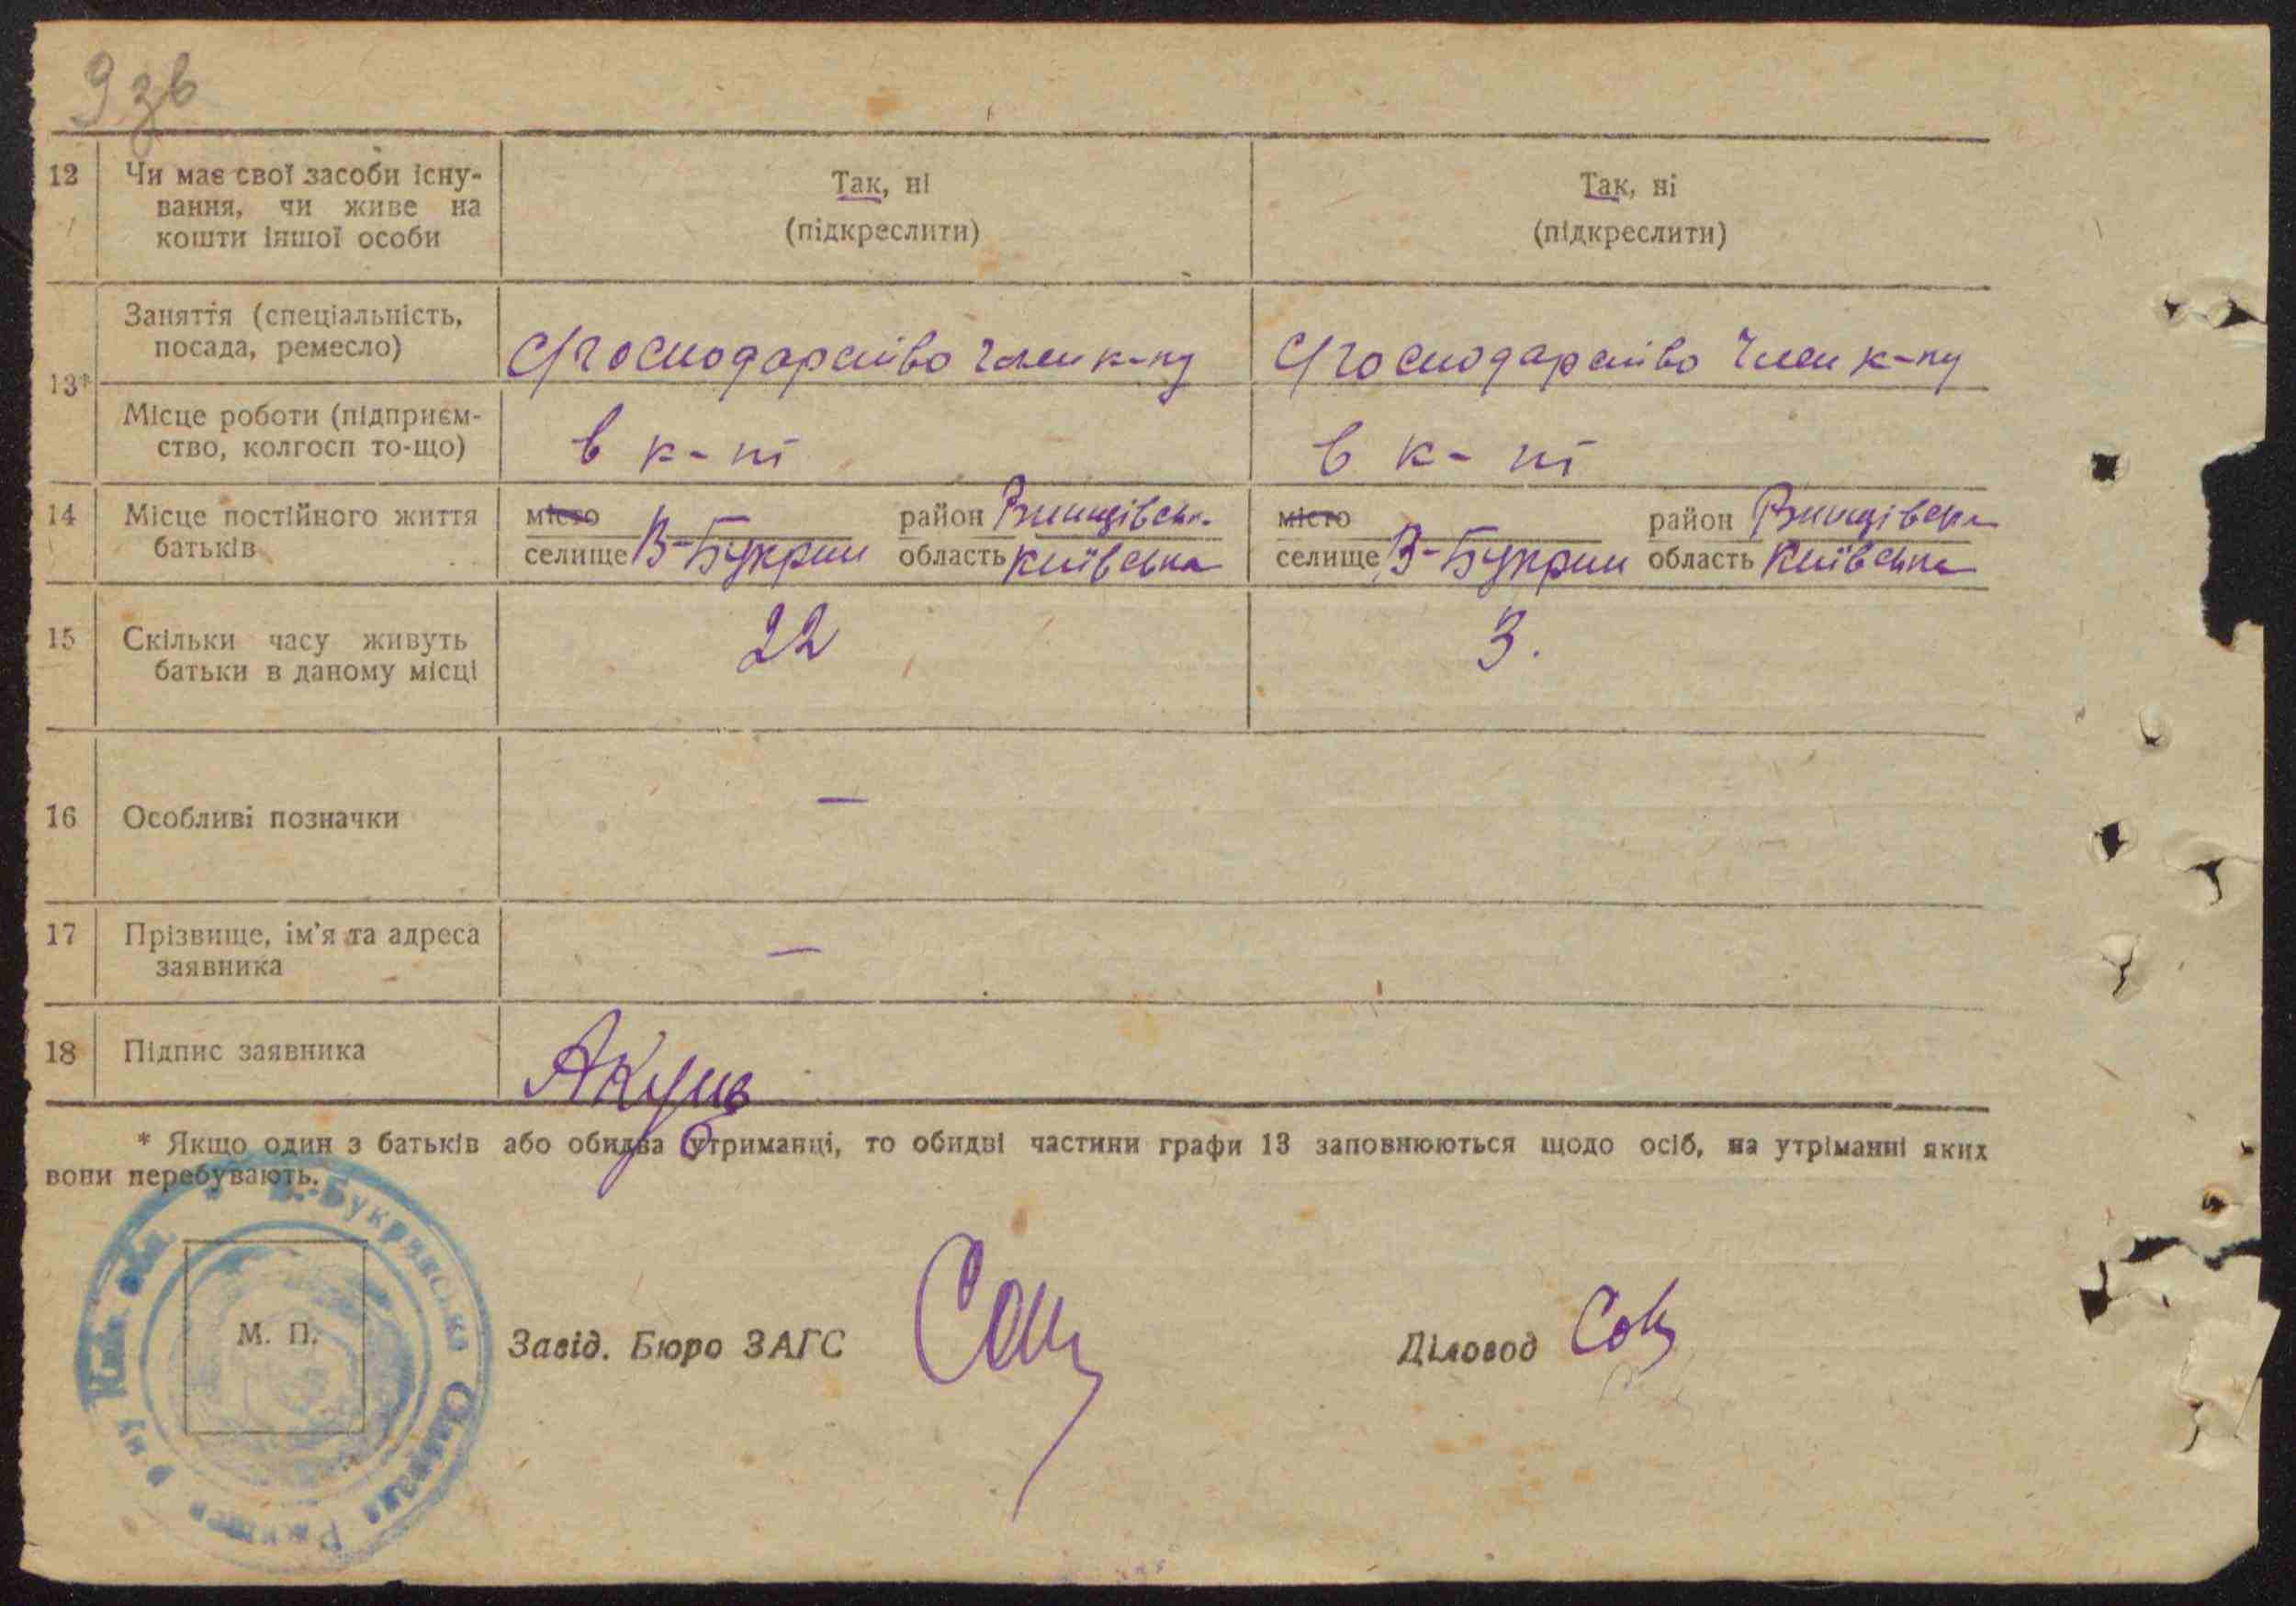 9 зв
12 Чи має свої засоби існу- Так, ні Так, ні
вання, чи живе на
кошти іншої особи (підкреслити) (підкреслити)
Заняття (спеціальність,
посада, ремесло) С/господарство член к-пу С/господарство член к-пу
13*
Місце роботи (підприєм-
ство, колгосп то-що) в к-пі в к-пі
14 Місце постійного життя місто район Ржищівськ. місто район Ржищівськ
батьків селище В-Букрин область Київська селище В-Букрин область Київська
15 Скільки часу живуть 22 3.
батьки в даному місці
16 Особливі позначки —
17 Прізвище, ім'я та адреса —
заявника
18 Підпис заявника
* Якщо один з батьків або обидва утриманці, то обидві частини графи 13 заповнюються щодо осіб, на утріманні яких
вони перебувають.
В.-Букринська Сільрада р-ну Київ. обл.
М. П.
Завід. Бюро ЗАГС Діловод